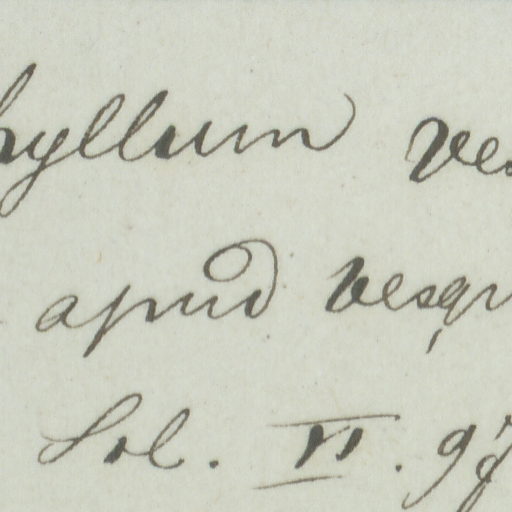 hyllum ves
apud vesqr
Sol. VI. 97